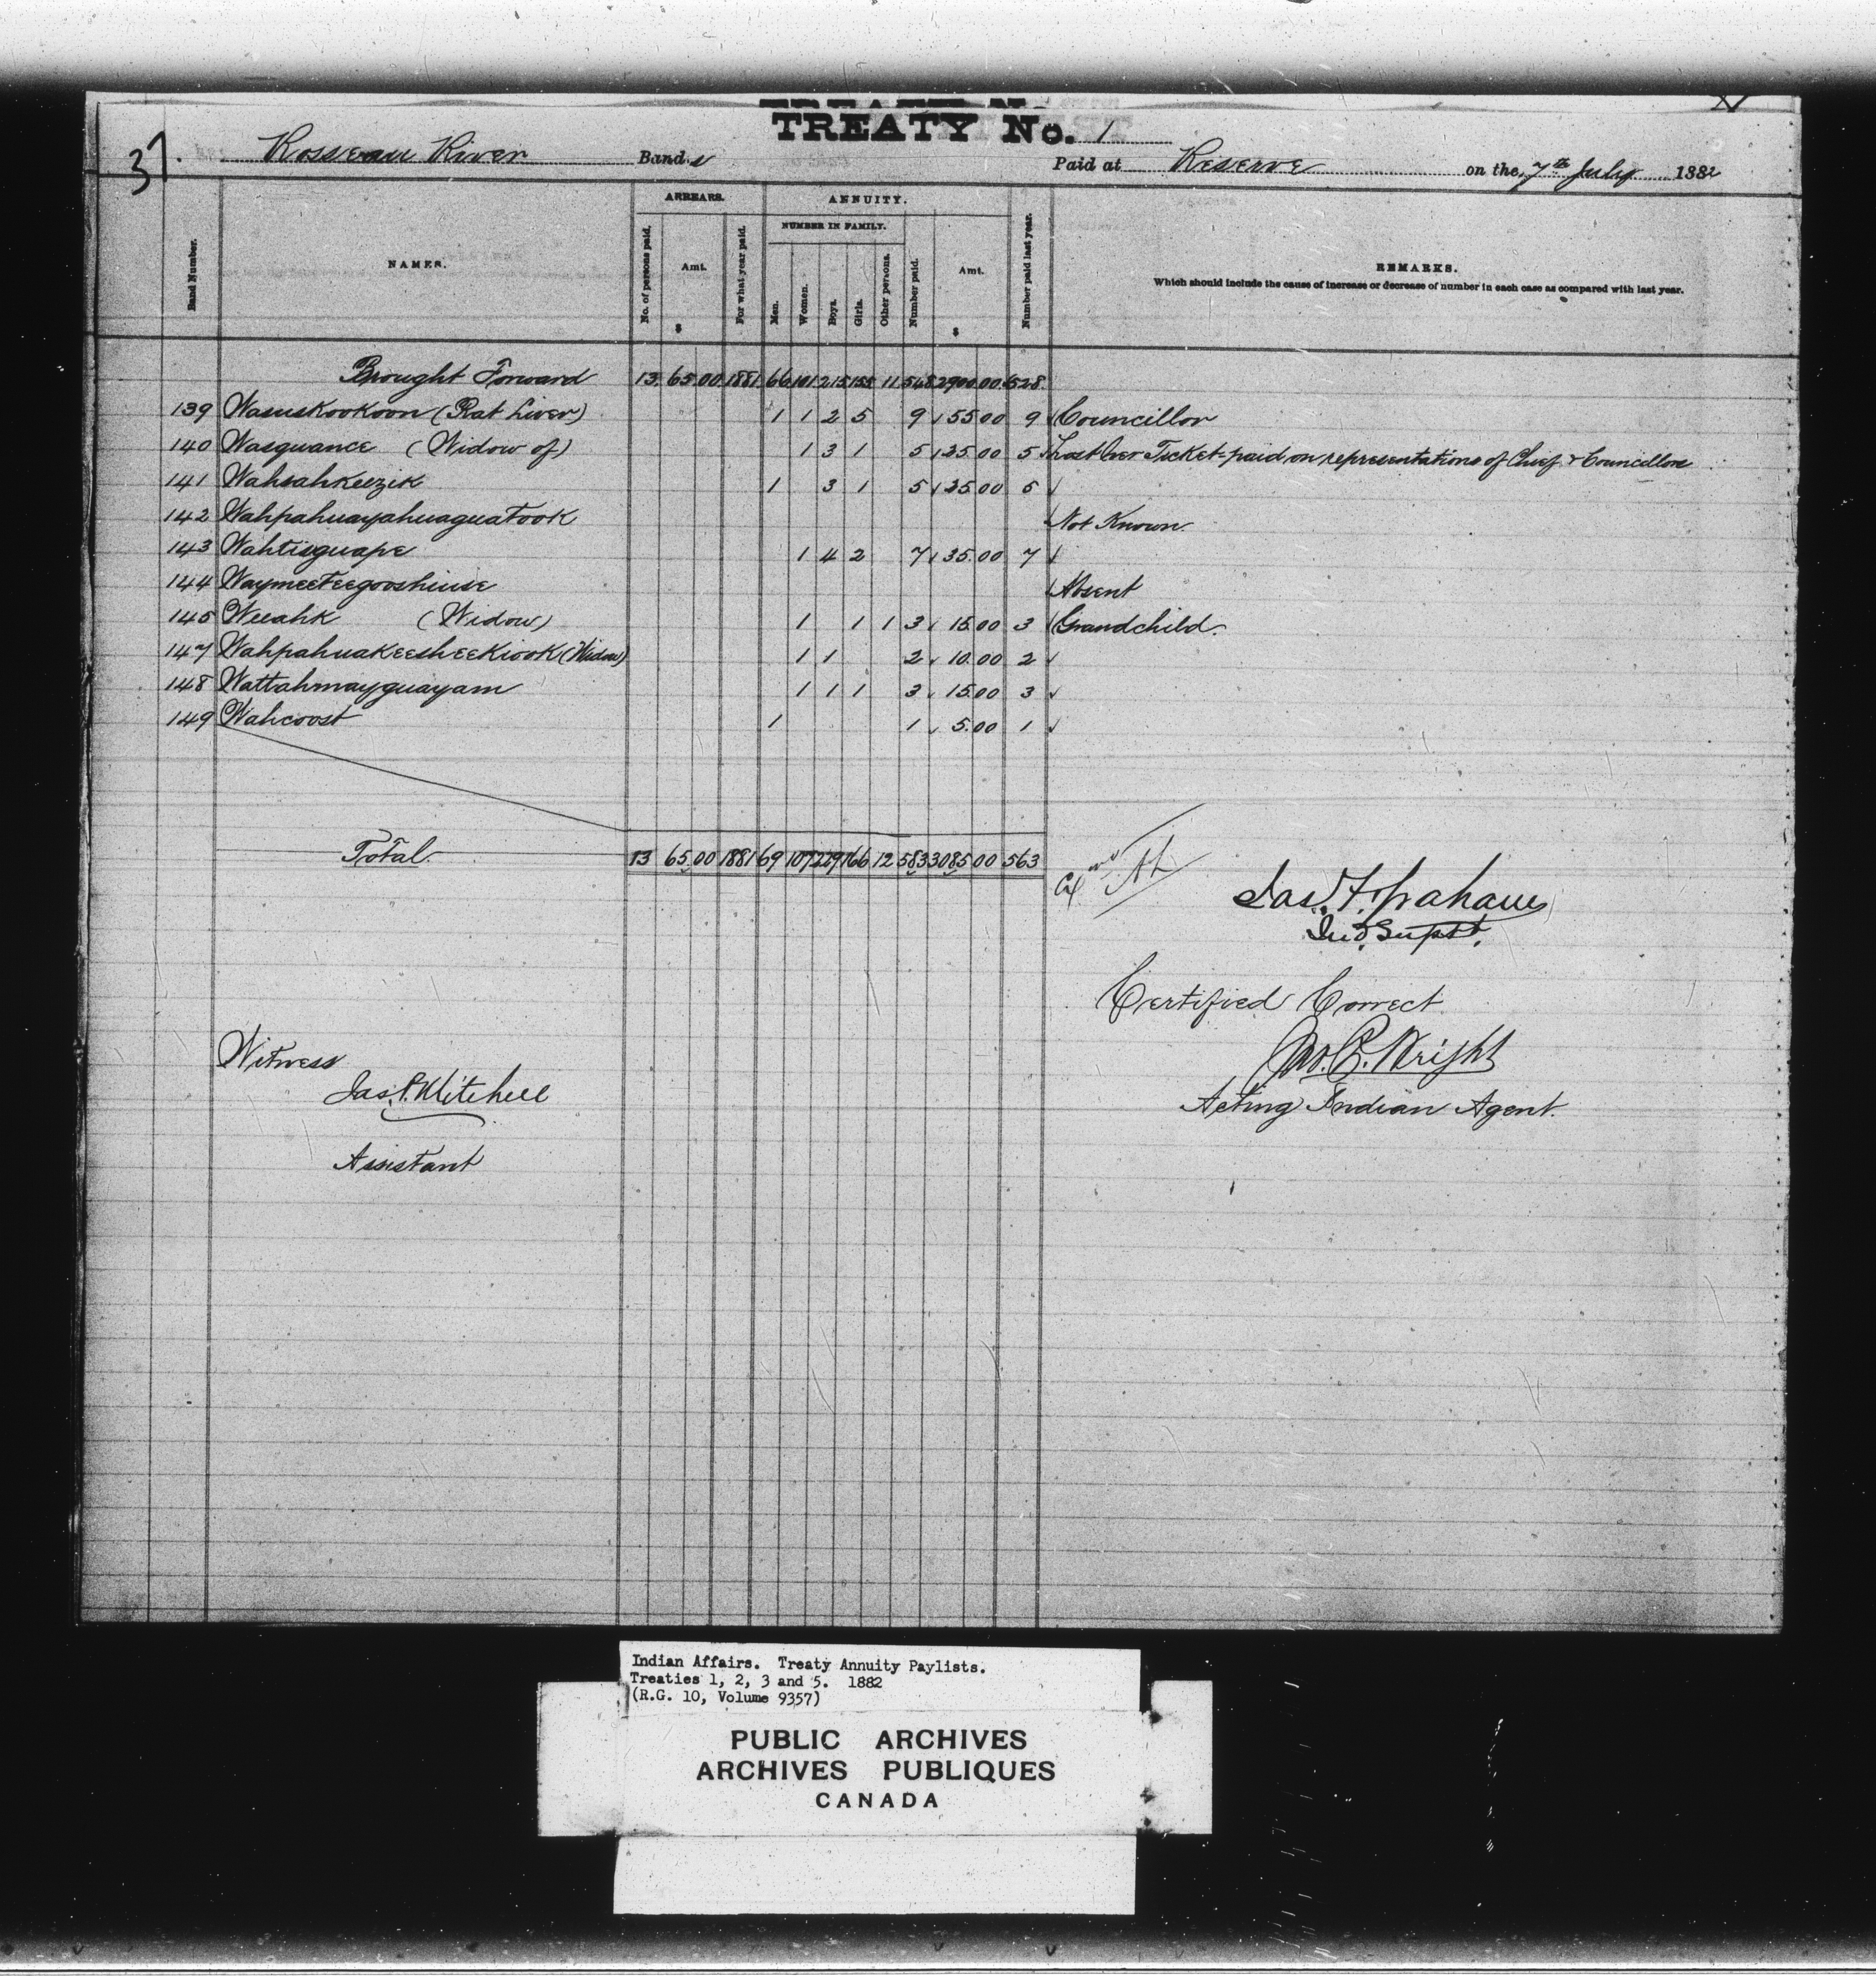 TREATY No. 1
37. Rosseau River Bands Paid at Reserve on the 7th July 1882
Band Number. NAMES. ARREARS. No. of persons paid. Amt. $ For what year paid. ANNUITY. NUMBER IN FAMILY. Men. Women. Boys. Girls. Other persons. Number paid. Amt. $ Number paid last year. REMARKS.
Which should include the cause of increase or decrease of number in each case as compared with last year.
Brought Forward 13 65.00 1881 66 101 215 155 11 548 2900.00 528
139 Wasuskookoon (Rat Liver) 1 1 2 5 9 55 00 9 Councillor
140 Wasquance (Widow of) 1 3 1 5 25.00 5 Lost her Ticket-paid on representations of Chief & Councillors
141 Wahsahkeezik 1 3 1 5 25.00 5
142 Wahpahuayahuaguatook Not Known
143 Wahtisguape 1 4 2 7 35.00 7
144 Waymeeteegooshiuse Absent
145 Weeahk (Widow) 1 1 1 3 15.00 3 Grandchild.
147 Wahpahuakeesheekiook (Widow) 1 1 2 10.00 2
148 Wattahmayguayam 1 1 1 3 15.00 3
149 Wahcoost 1 1 5.00 1
Total 13 65.00 1881 69 107 229 166 12 583 3085.00 563
Jas. F. Graham
Ind Supt.
Certified Correct
Witness
Jas. P. Mitchell
Assistant
Jno. C. Wright
Acting Indian Agent.
Indian Affairs. Treaty Annuity Paylists.
Treaties 1, 2, 3 and 5. 1882
(R.G. 10, Volume 9357)
PUBLIC ARCHIVES
ARCHIVES PUBLIQUES
CANADA